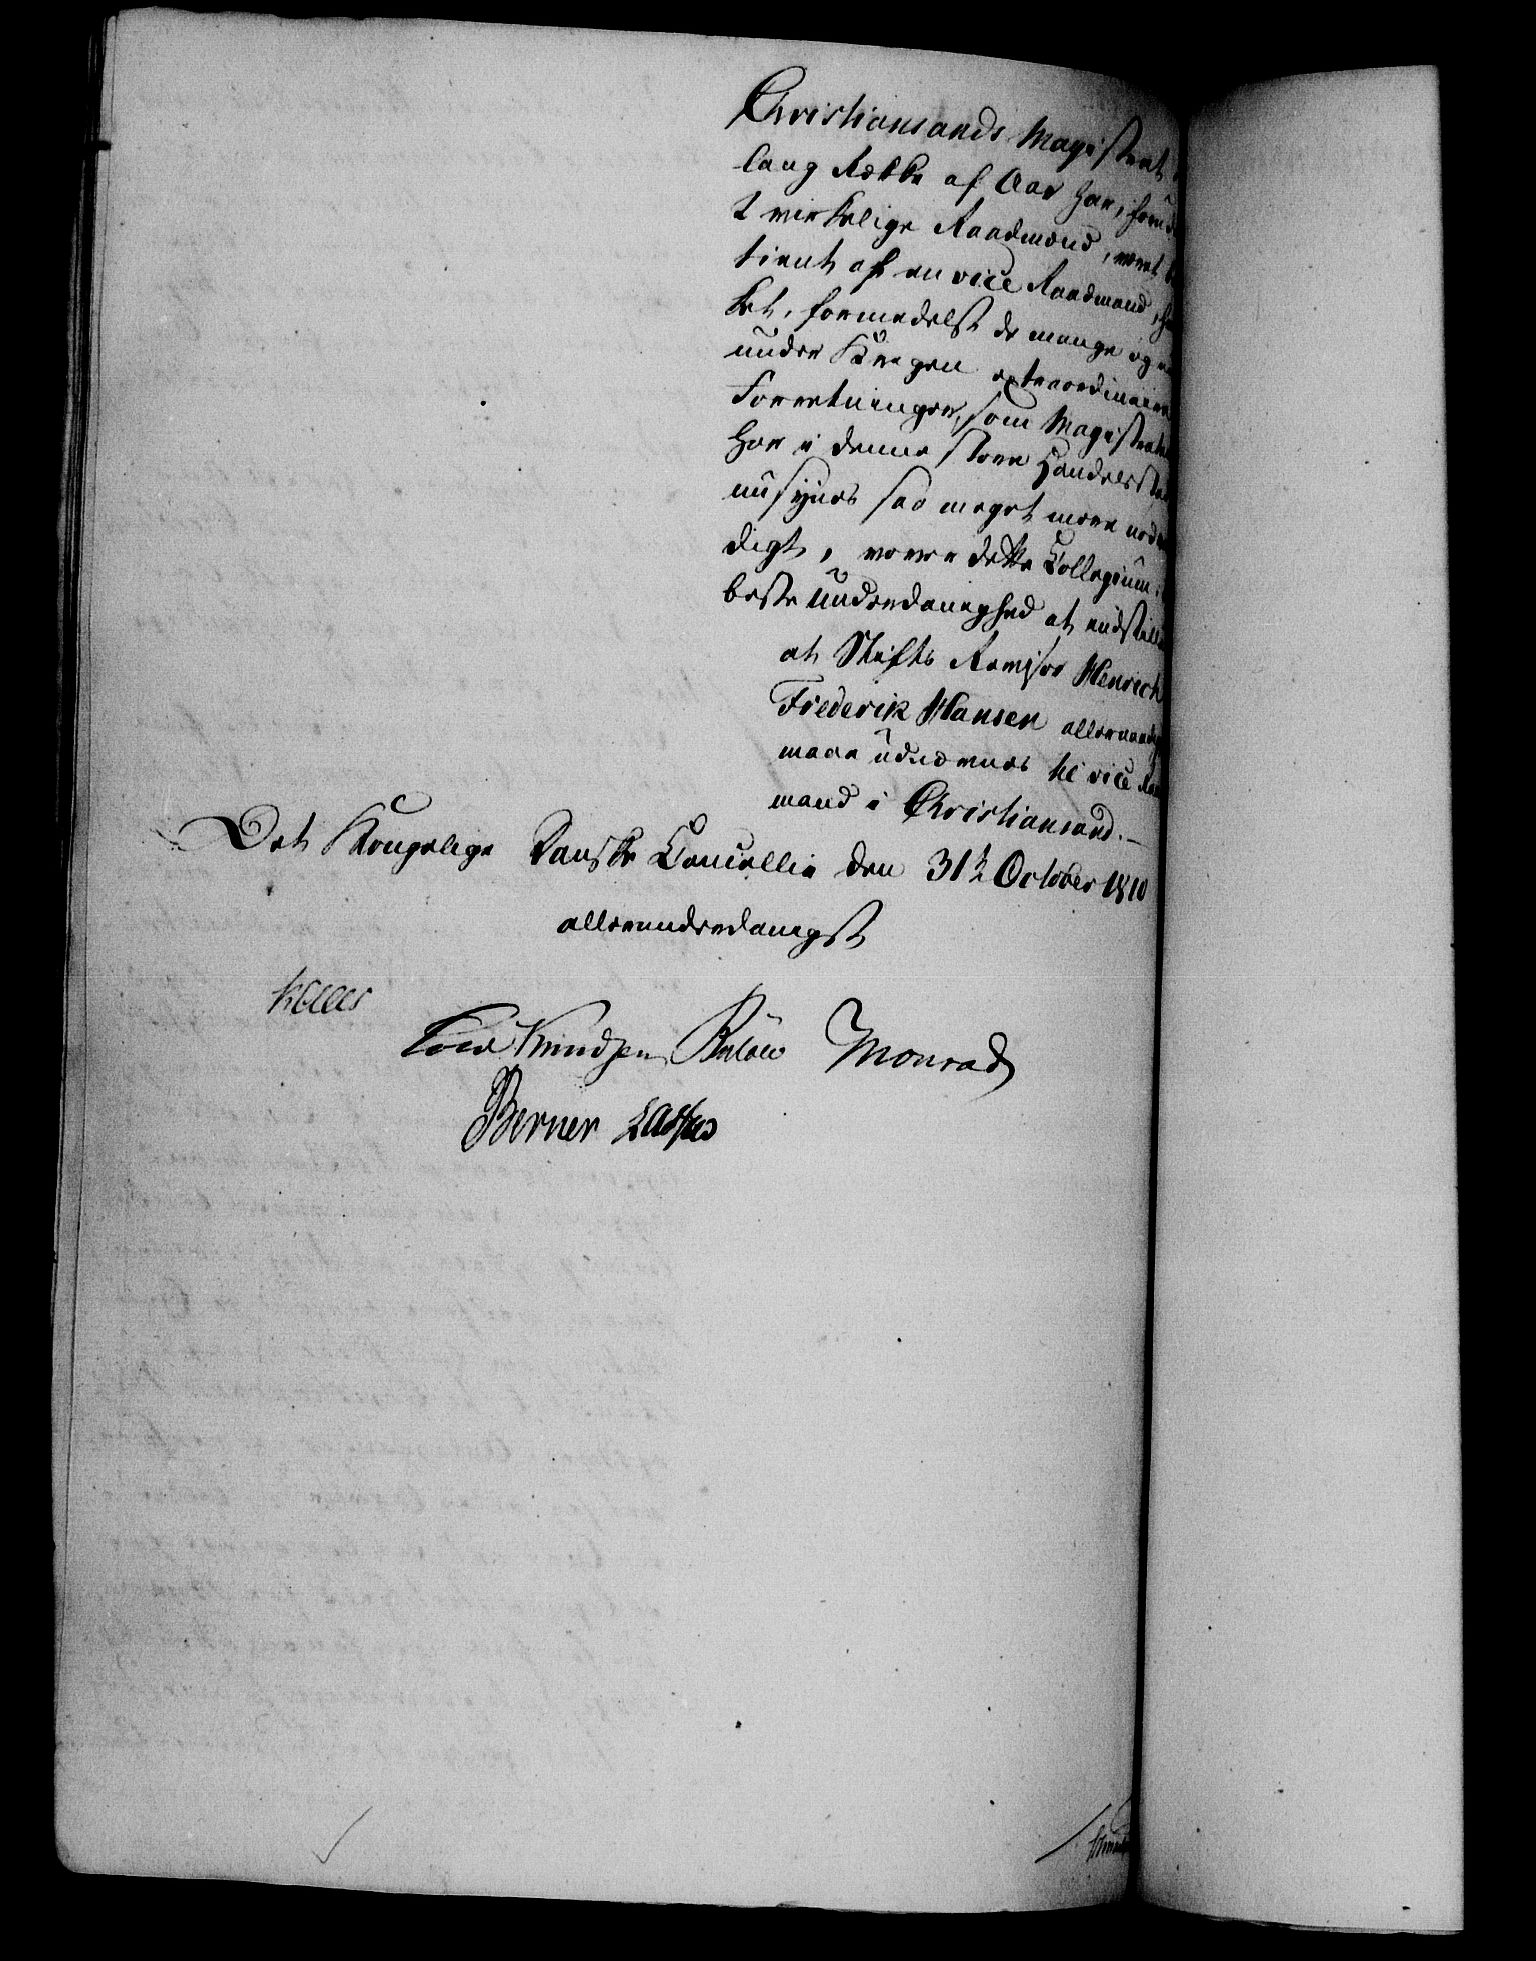 Christiansands Magistrat
lang Række af Aar har, foruden
2 virkelige Raadmænd, været be
tient af en vice Raadmand, hvil
ket, formedelst de mange og
under Krigen extraordinaire
Forretninger, som Magistraten
har i denne store Handelsstad
nu synes saa meget mere nødven
digt, vover dette Collegium
beste Underdanighed at indstille
at Stifts Revisor Henrich
Frederik Hansen allernaadigst
maae udnævnes til vice Raad
mand i Christiansand. —
Det Kongelige Danske Cancellie den 31te October 1810
allerunderdanigst
Kaas
Cold Knudsen Bülow Monrad
Berner Lassen